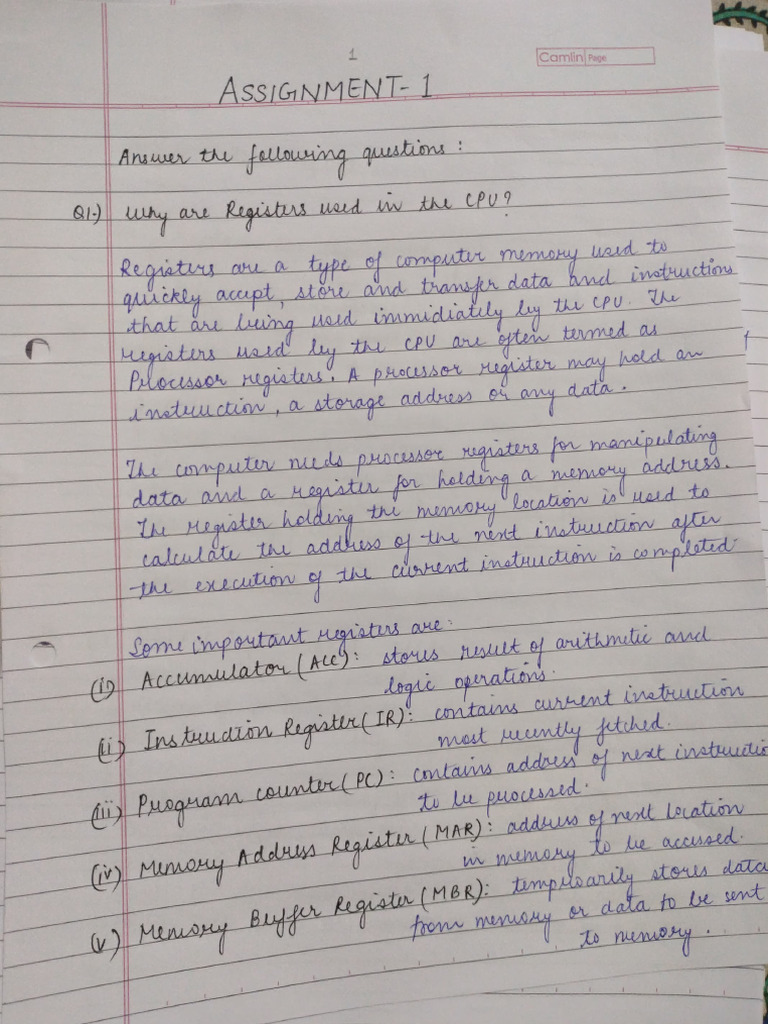 1
Camlin Page
ASSIGNMENT-1
Answer the following questions :
Q1-) Why are Registers used in the CPU?
Registers are a type of computer memory used to
quickly accept, store and transfer data and instructions
that are being used immidiately by the CPU. The
registers used by the CPU are often termed as
Processor registers. A processor register may hold an
instruction, a storage address or any data.
The computer needs processor registers for manipulating
data and a register for holding a memory address.
The register holding the memory location is used to
calculate the address of the next instruction after
the execution of the current instruction is completed.
Some important registers are:
(i) Accumulator (ACC): stores result of arithmetic and
logic operations.
(ii) Instruction Register (IR): contains current instruction
most recently fetched.
(iii) Program counter (PC): contains address of next instructio
to be processed.
(iv) Memory Address Register (MAR): address of next location
in memory to be accessed.
(v) Memory Buffer Register (MBR): temporarily stores data
from memory or data to be sent
to memory.